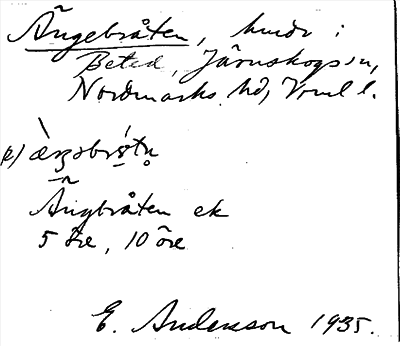 Ängebråten, hmdr i
Beted, Järnskogs sn,
Nordmarks hd, Vrml l.
a) æ̀ŋəbró̱tn̥
Ängbråten ek
5 öre, 10 öre
E. Andersson 1935.